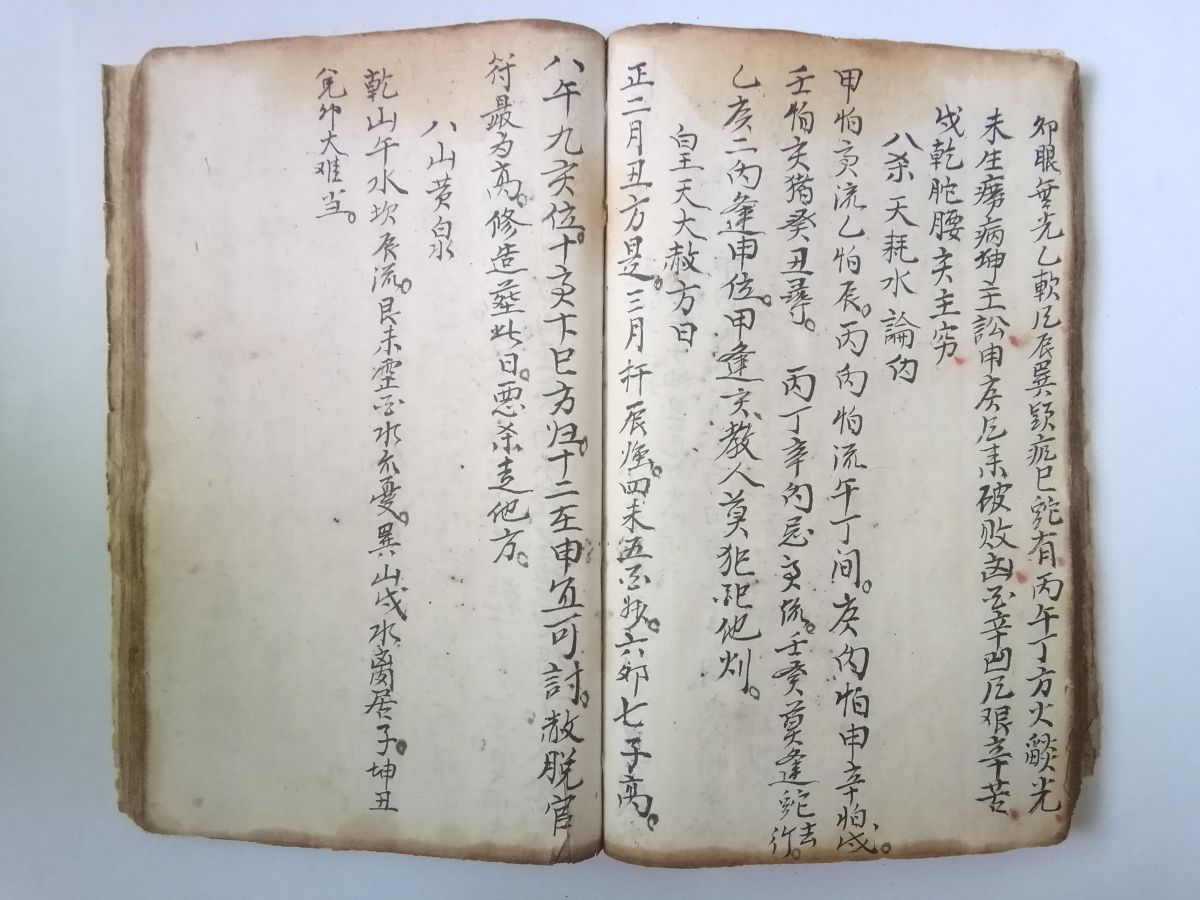 卯眼無光乙軟瓦辰巽頸疤巳蛇有丙午丁方火燄光
未生癆病坤主訟申庚瓦耒破败凶酉辛凹瓦艰辛苦
戌乾脆腰亥主穷
八杀天耗水論内
甲怕亥流乙怕辰。丙内怕流午丁间。庚内怕申辛怕戌。
壬怕亥猪癸丑尋。丙丁辛内忌亥流。壬癸莫逢蛇去行。
乙亥二内逢申位。甲逢亥教人莫犯祀他刈。
皇天大赦方日
正二月丑方是。三月杆辰煌。四未五酉妙。六卯七子高。
八午九亥位。十亥十巳方归。十二至申宜可討。赦脱官
符最为高。修造葬此日。恶杀走他方。
八山黄泉
乾山午水坎辰流。艮未震酉水不憂。巽山戌水离居子。坤丑
兑卯大难当。